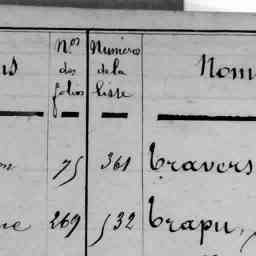 ns Nos des folios Numéros de la liste Nom
on 75 361 Travers
ne 269 532 Trapu,